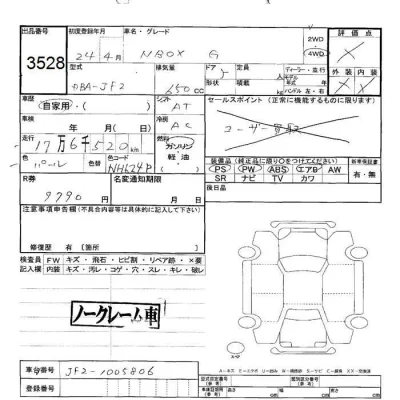 出品番号 初度登録年月 車名・グレード 評価点
3528 24年4月 NBOX G 2WD 4WD X
型式 排気量 ドア 定員 ディーラー・並行
DBA-JF2 650 CC 5 形状 積載 人 kg モデル 年 ハンドル 左・右 外装 内装
車歴 自家用・( ) シフト AT セールスポイント (正常に機能するものに限ります)
車検 年 月(日) 冷房 AC ユーザー買取
走行 17万6千520km 燃料 ガソリン・軽油
色 パール 色替 色コード NH624P 装備品 (純正品に限り○をつけてください) 新車保証書
PS PW ABS エアB AW 有・無
SR ナビ TV カワ
R券 9790 名変通知期限 後日品
注意事項申告欄(不具合内容等は具体的に記入して下さい)
修復歴 有 [箇所 ]
検査員記入欄 FW キズ・飛石・ヒビ割・リペア跡・×要
内装 キズ・汚レ・コゲ・穴・スレ・キレ・破レ
ノークレーム車
スペア
車台番号 JF2-1005806
登録番号
型式指定番号 (参考) 類別区分番号 (参考)
車体証明用 (参考) 長さ 幅 高さ